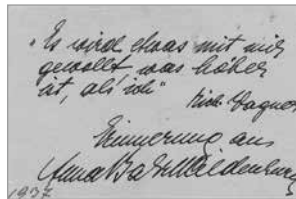 „Es wird etwas mit mir
gewollt was höher
ist, als ich"
Rich. Wagner
Erinnerung an
Anna Bahr-Mildenburg
1937